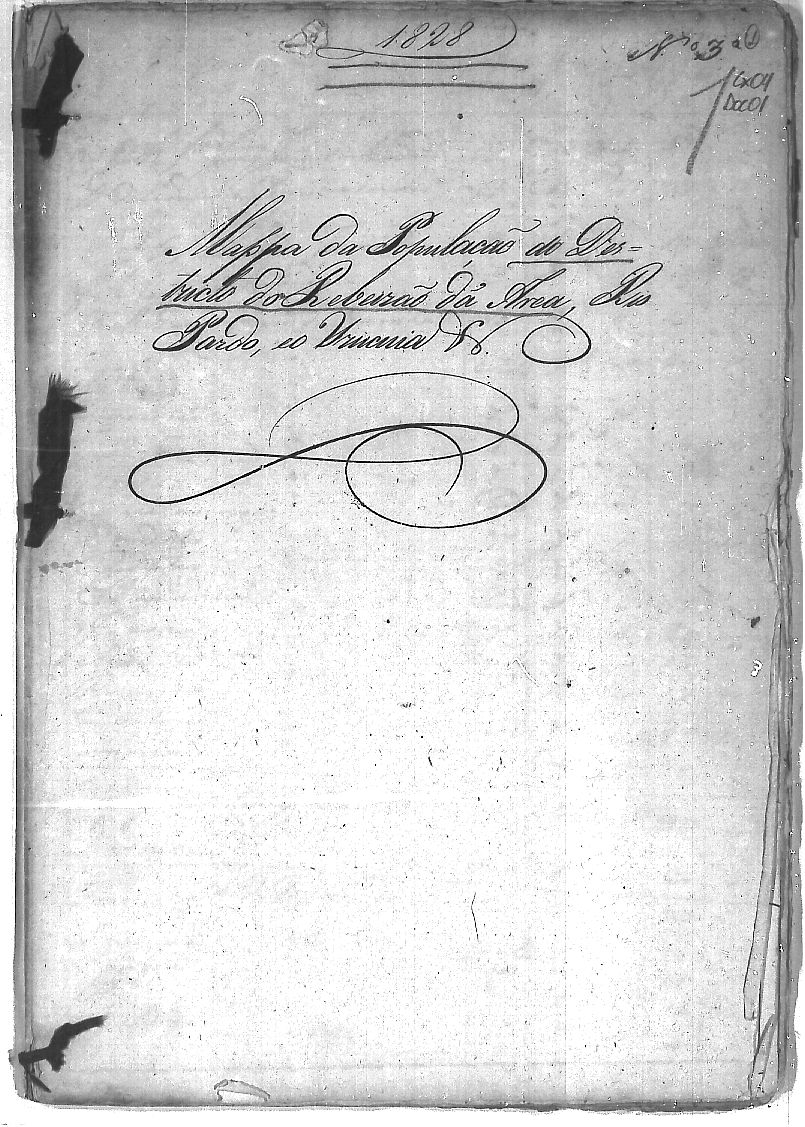 1828
Nº 3ª 1
Cx01
Doc01
Mappa da População do Des=
tricto do Rebeirão da Area, Rio
Pardo, eo Urucuia &.